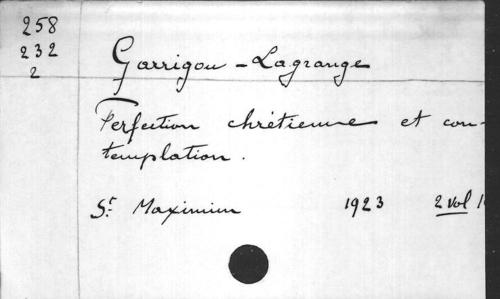 258
232
2
Garrigou-Lagrange
Perfection chrétienne et con-
templation.
St Maximin 1923 2 vol